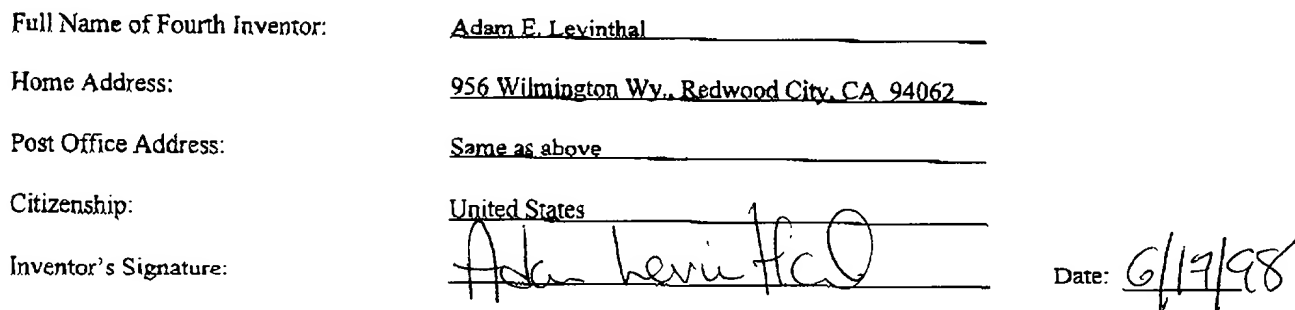 Full Name of Fourth Inventor: Adam E. Levinthal
Home Address: 956 Wilmington Wy., Redwood City, CA 94062
Post Office Address: Same as above
Citizenship: United States
Inventor's Signature: Adam Levinthal Date: 6/17/98